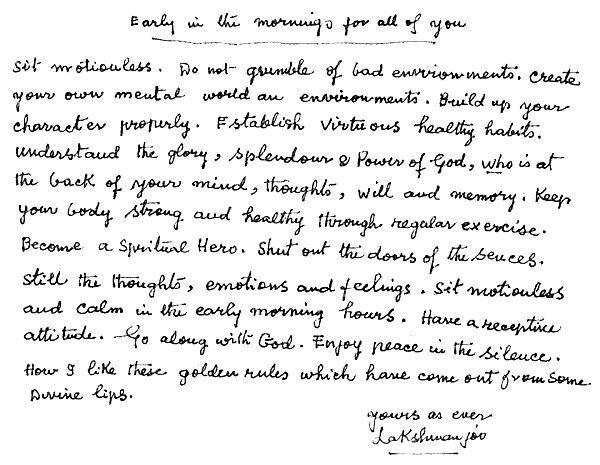 Early in the mornings for all of you
Sit motionless. Do not grumble of bad environments. Create
your own mental world an environments. Build up your
character properly. Establish Virtuous healthy habits.
Understand the glory, splendour & Power of God, who is at
the back of your mind, thoughts, will and memory. Keep
your body strong and healthy through regular exercise.
Become a Spiritual Hero. Shut out the doors of the sences.
Still the thoughts, emotions and feelings. Sit motionless
and calm in the early morning hours. Have a receptive
attitude. Go along with God. Enjoy peace in the silence.
How I like these golden rules which have come out from some
Divine lips.
yours as ever
Lakshmanjoo